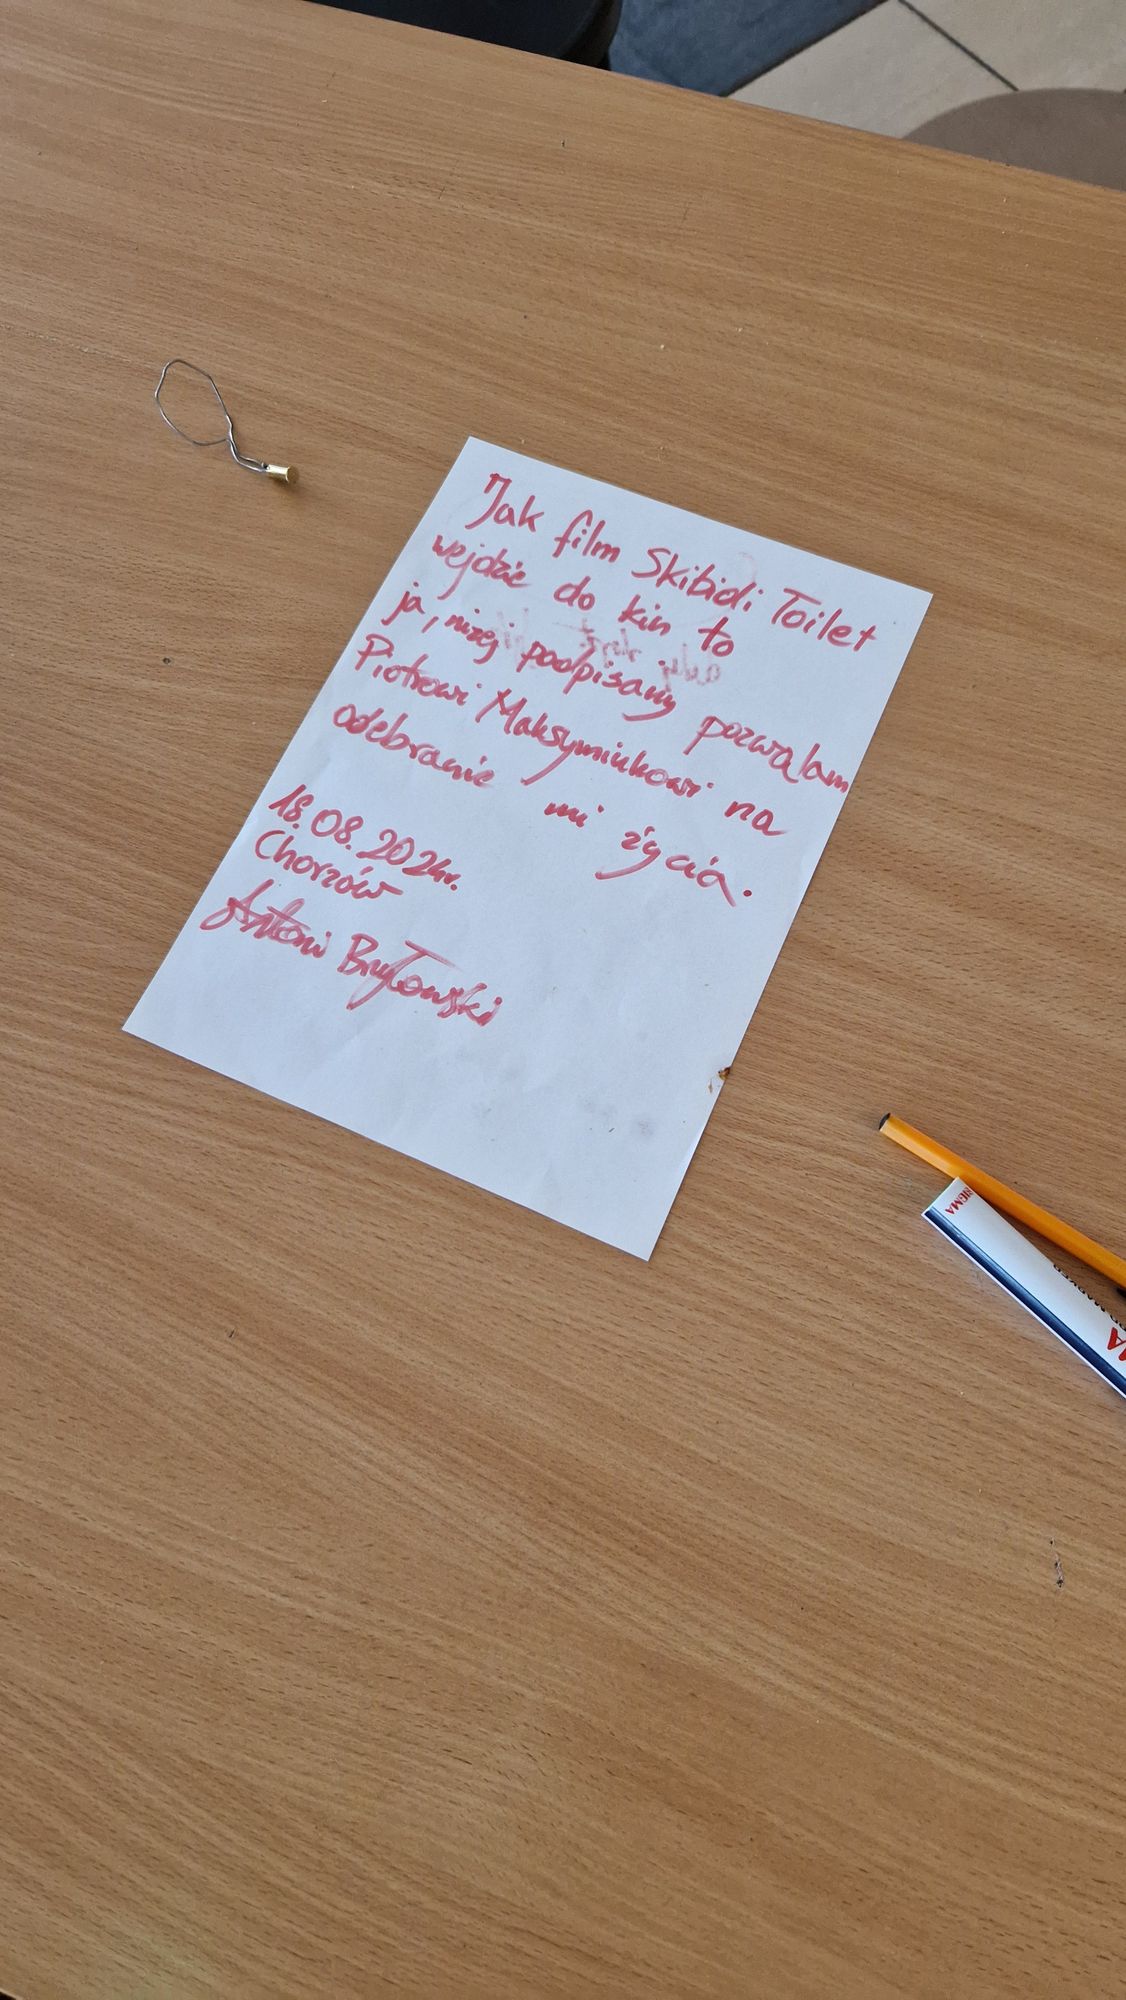 Jak film Skibidi Toilet
wejdzie do kin to
ja, niżej podpisany pozwalam
Piotrowi Maksymiukowi na
odebranie mi życia.
18.08.2024r.
Chorzów
Antoni Bryłowski
SIGMA